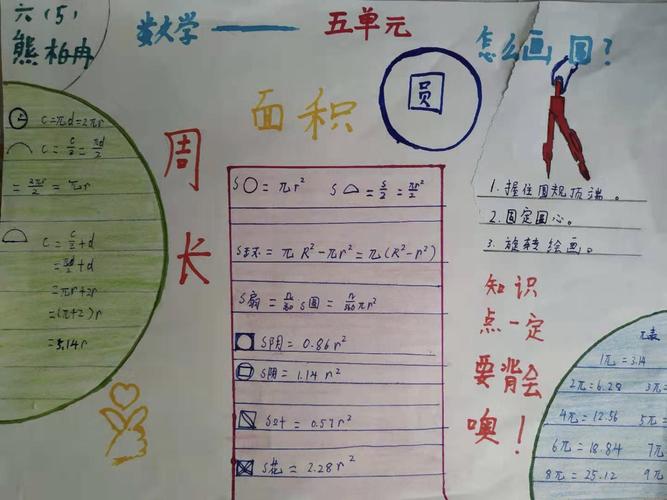 六(5)
熊柏冉
数大学——五单元
怎么画圆？
圆
面积
周长
C=πd=2πr
C=C/2=πd/2
=2πr/2=πr
C=C/2+d
=πd/2+d
=πr+2r
=(π+2)r
=5.14r
S○=πr²
S⌓=S/2=πr²/2
S环=πR²-πr²=π(R²-r²)
S扇=n/360 S圆=n/360 πr²
S阴=0.86r²
S阴=1.14r²
S叶=0.57r²
S花=2.28r²
1.握住圆规顶端。
2.固定圆心。
3.旋转绘画。
知识
点一定
要背会
噢！
π表
1π=3.14
2π=6.28
3π=
4π=12.56
5π=
6π=18.84
7π
8π=25.12
9π